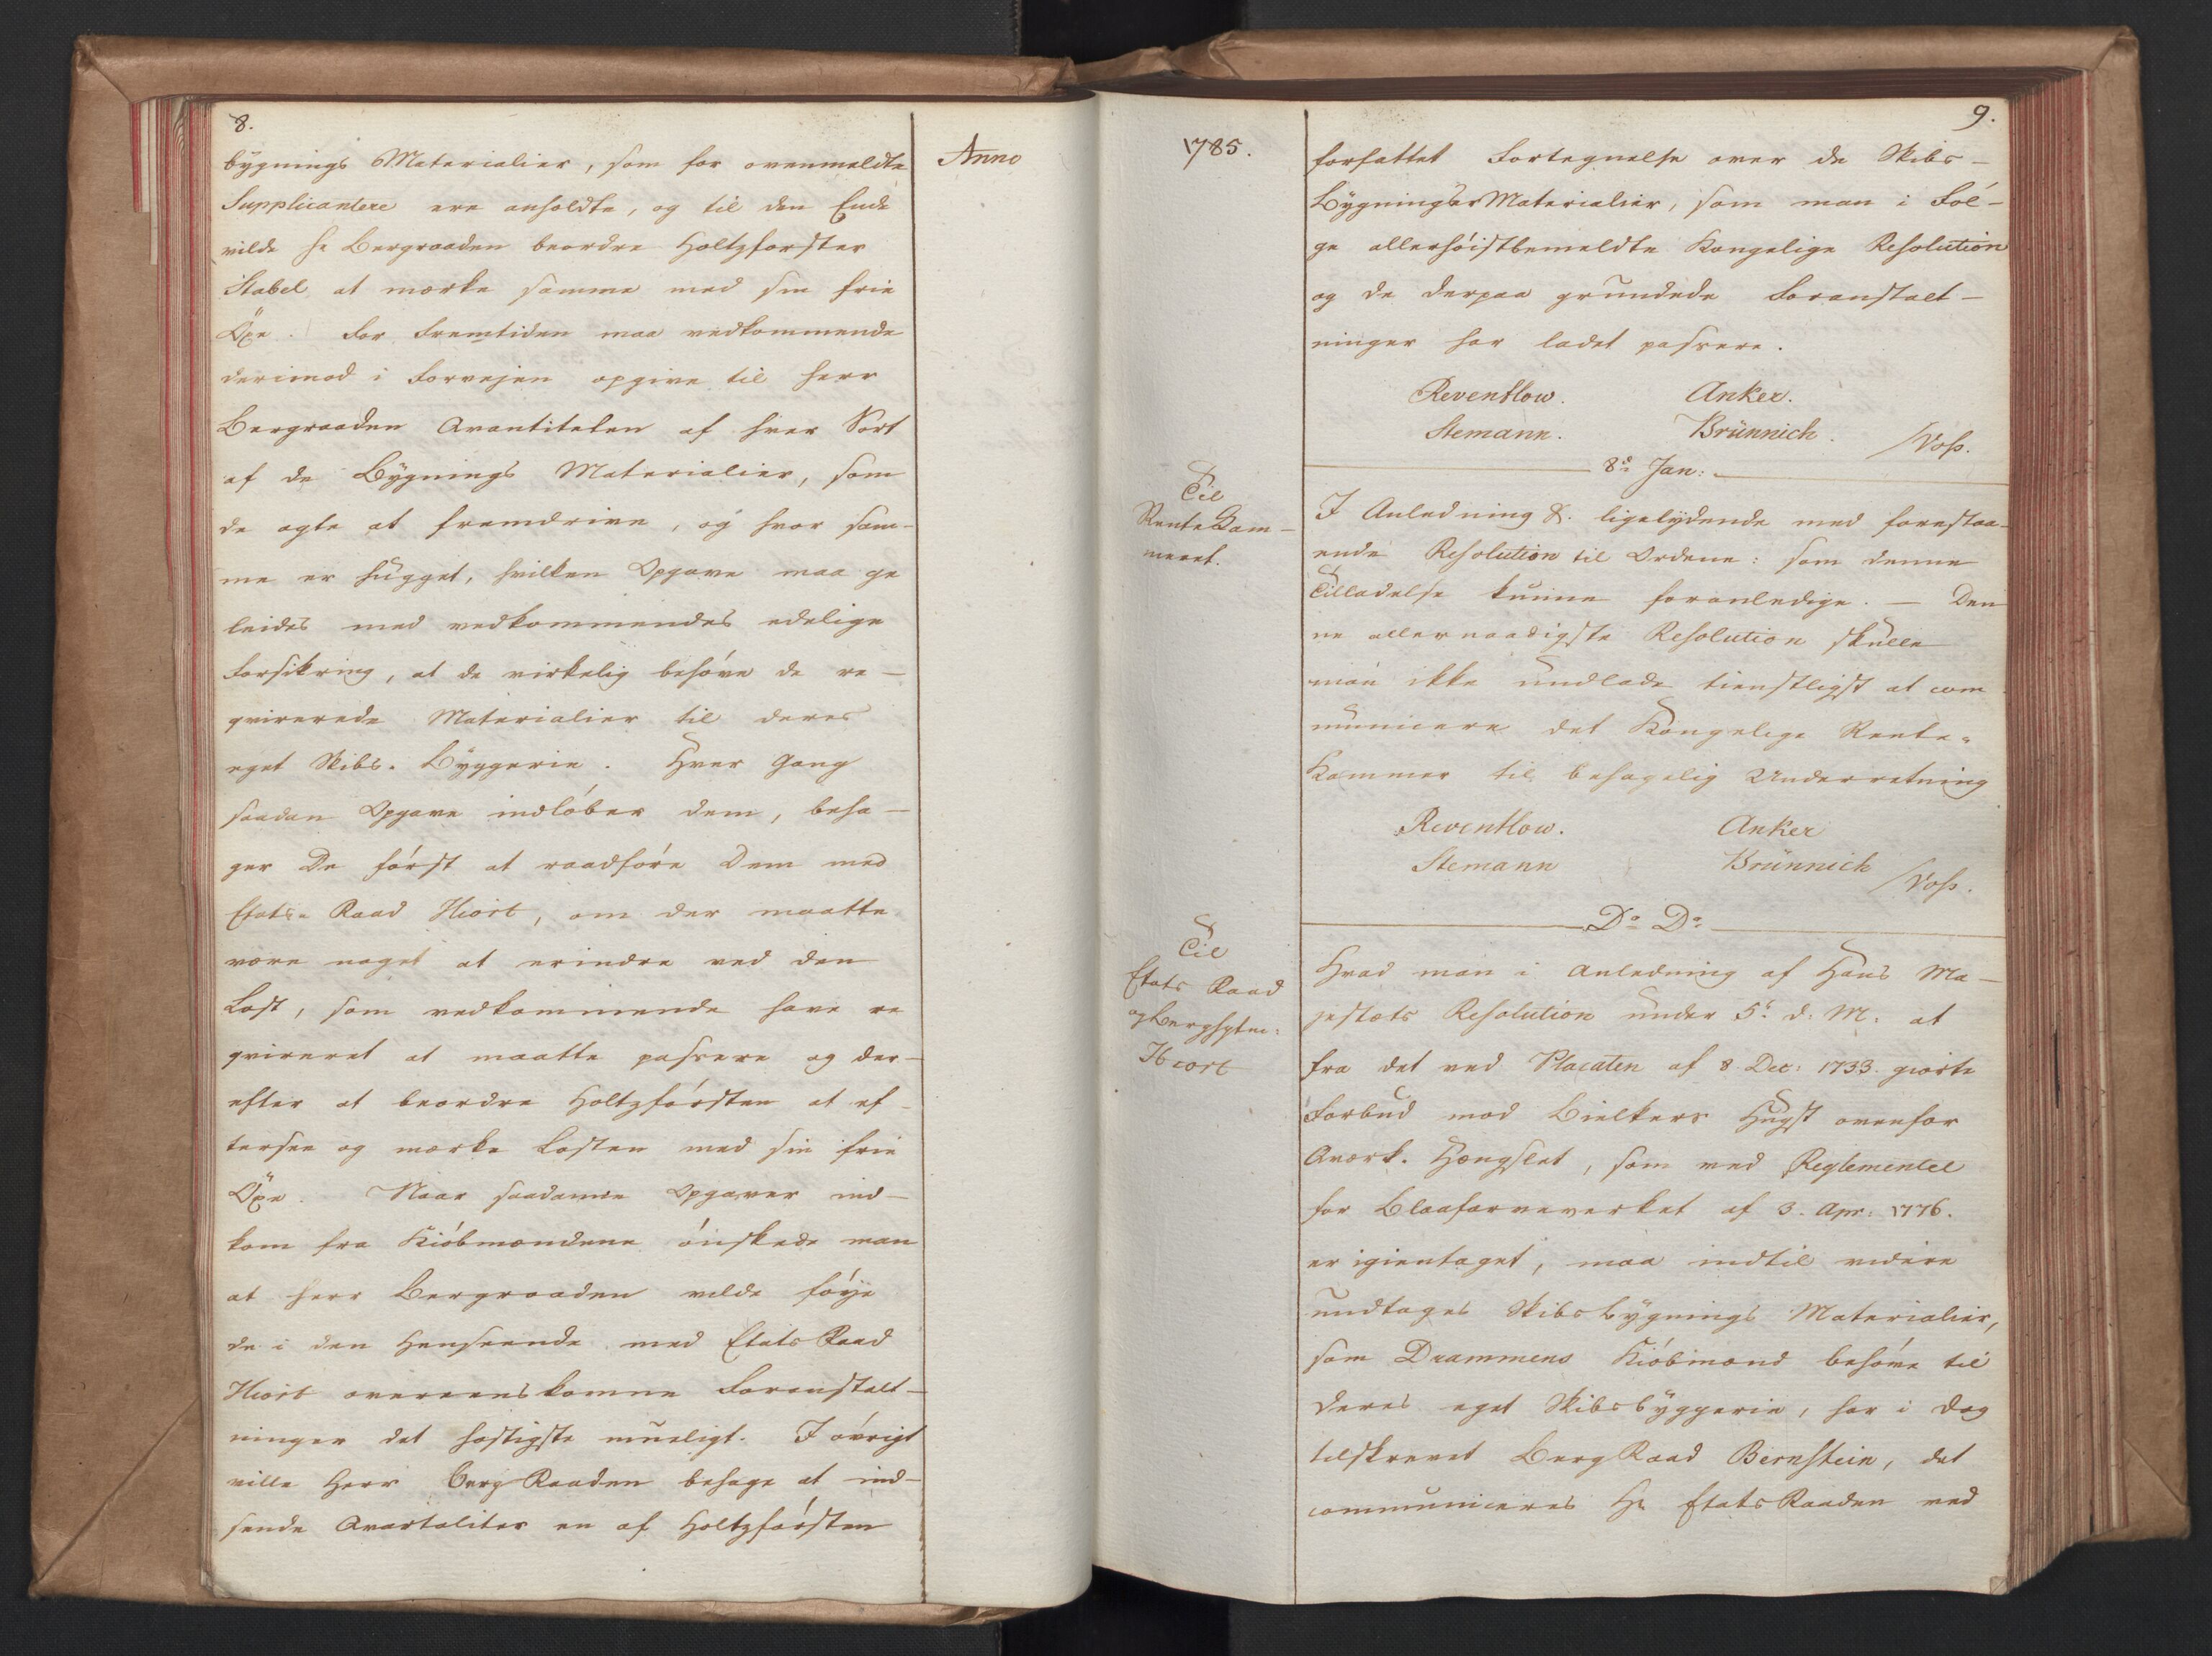 8.
bygnings Materialier, som for ovenmeldte
Supplicantere ere anholdte, og til den Ende
vilde Hr Bergraaden beordre Holtzforster
Stabel at mærke samme med sin frie
Öxe. For Fremtiden maa vedkommende
derimod i Forvejen opgive til Herr
Bergraaden Qvantiteten af hver Sort
af de Bygnings Materialier, som
de agte at fremdrive, og hvor sam-
me er hugget, hvilken Opgave maa ge
leides med vedkommendes edelige
Forsikring, at de virkelig behöve de re-
qvirerede Materialier til deres
eget Skibs-Byggerie. Hver Gang
saadan Opgave indlöber dem, beha-
ger De först at raadföre Dem med
Etats-Raad Hiort, om der maatte
være noget at erindre ved den
Last, som vedkommende have re
qvireret at maatte passere og der-
efter at beordre Holtzförsten at ef-
tersee og mærke Lasten med sin frie
Öxe. Naar saadanne Opgaver ind-
kom fra Kiöbmændene önskede man
at Herr Bergraaden vilde föye
de i den Henseende med Etats Raad
Hiort overeenskomne Foranstalt-
ninger det hastigste mueligt. I övrigt
ville Herr Berg Raaden behage at ind-
sende Qvartaliter en af Holtzförsten
Anno
1785.
9.
forfattet Fortegnelse over de Skibs-
Bygnings Materialier, som man i Föl-
ge allerhöistbemeldte Kongelige Resolution
og de derpaa grundede Foranstalt-
ninger har ladet passere.
Reventlow. Anker.
Stemann. Brünnich. /Voss.
8de Jan:
Til
Rente Kam-
meret.
I Anledning &. ligelydende med forestaa-
ende Resolution til Ordene: som denne
Tilladelse kunne foranledige. — Den
ne allernaadigste Resolution skulle
man ikke undlade tienstligst at com
municere det Kongelige Rente-
Kammer til behagelig Underretning
Reventlow. Anker
Stemann Brünnich /Voss.
Do Do
Til
Etats Raad
og Berghptm:
Hiort
Hvad man i Anledning af Hans Ma-
jestæts Resolution under 5t d: M: at
fra det ved Placaten af 8. Dec: 1733. giorte
Forbud mod Bielkers Hugst ovenfor
Qværk. Hængslet, som ved Reglementet
for Blaafarveverket af 3. Apr: 1776.
er igientaget, maa indtil videre
undtages Skibsbygnings Materialier,
som Drammens Kiöbmænd behöve til
deres eget Skibsbyggerie, har i Dag
tilskrevet Berg Raad Bernstein, det
communiceres Hr Etats Raaden ved